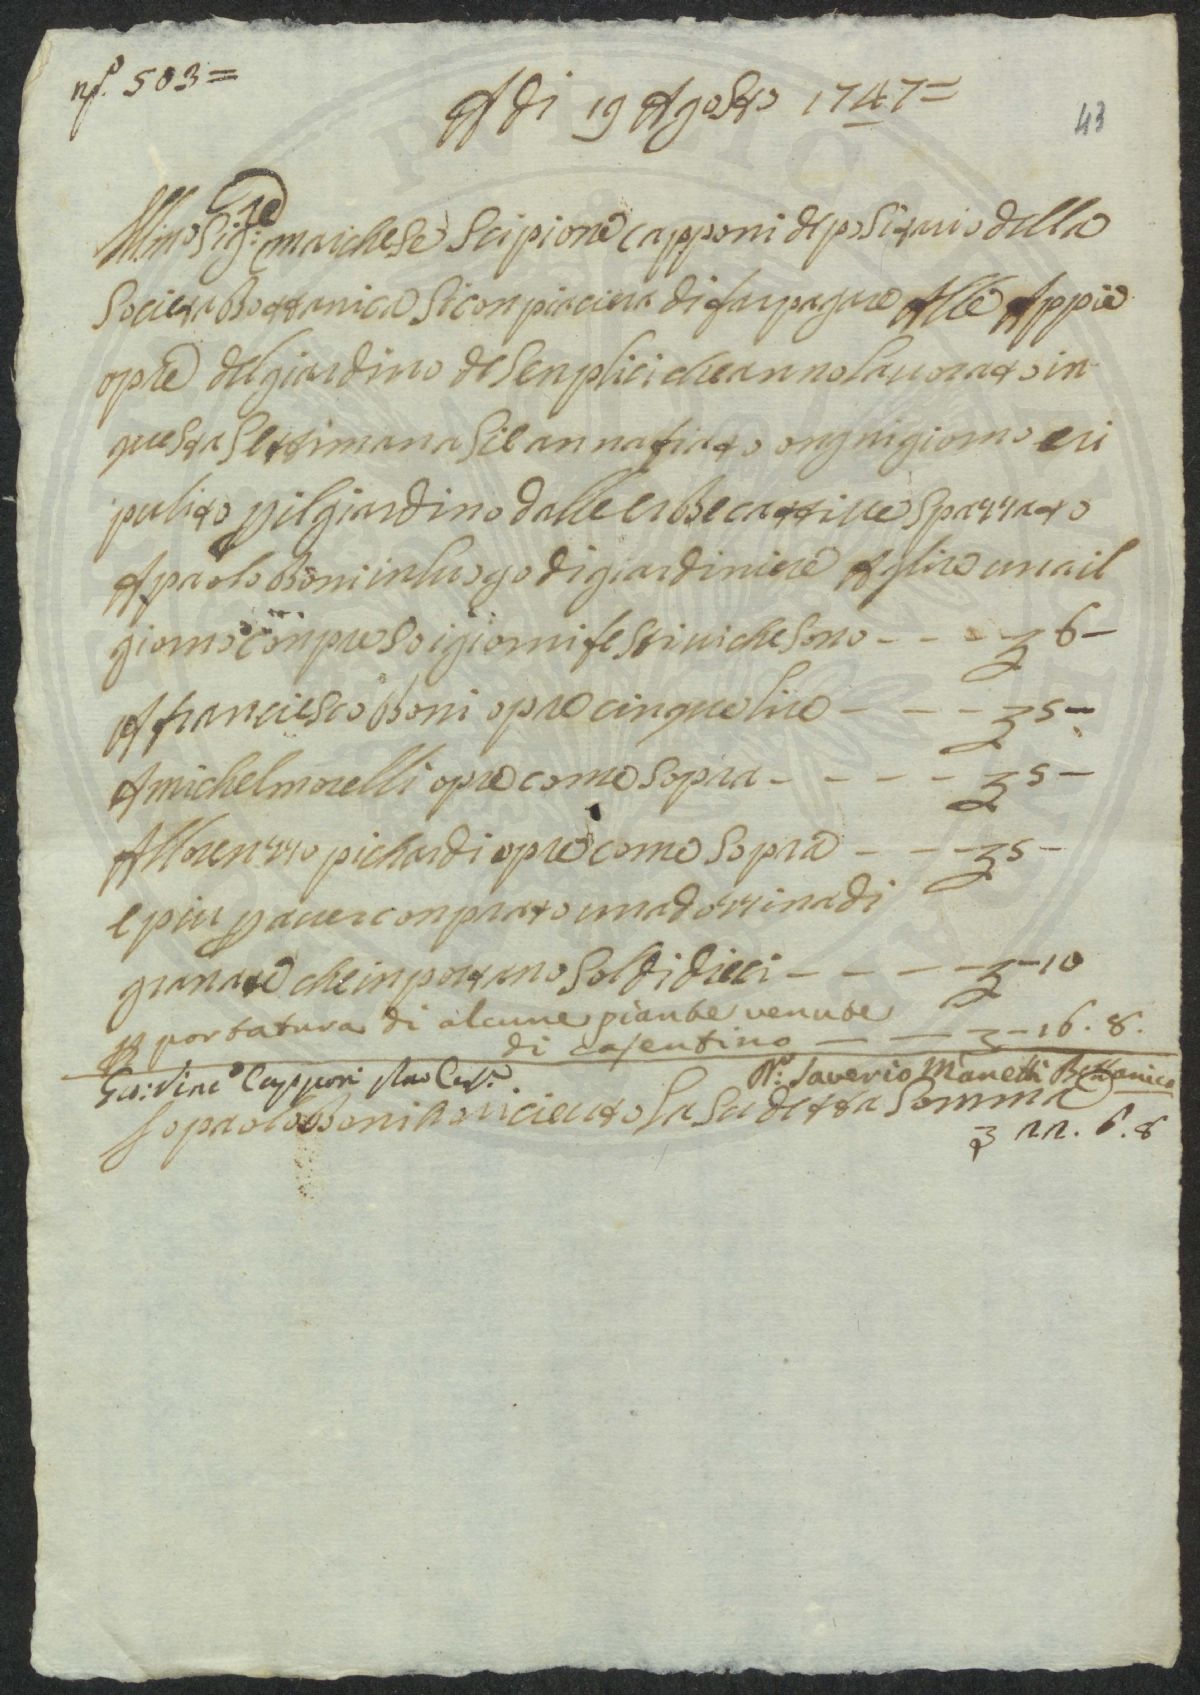 nº. 503=
A di 19 Agosto 1747=
43
Illmo Sig:re marchese Scipione capponi depositario della
Societa Bottanica Si conpiacera di far pagare Alle Appie
opre del giardino de Senplici che anno lavorato in
questa Settimana Si e annafiato ongni giorno e ri
pulito p il giardino dalle erbe cattive e Spazzato
A paolo Boni in luogo di giardiniere A lire una il
giorno conpreso i giorni festivi che sono - - - £ 6-
A franciesco Boni opre cinque lire - - - £ 5-
A michel morelli opre come sopra - - - - - £ 5-
A llorenzzo pichardi opre come Sopra - - - £ 5-
e piu p aver conprato una dozzina di
granate che inportano Soldi dieci - - - - £ -10
p portatura di alcune piante venute
di casentino - - - £ - 16. 8.
Gio: Vinc.o Capponi
D.r: Saverio Manetti Bottanico
Io paolo Boni o ricieuto la Sudetta Somma
£ 22. 6. 8